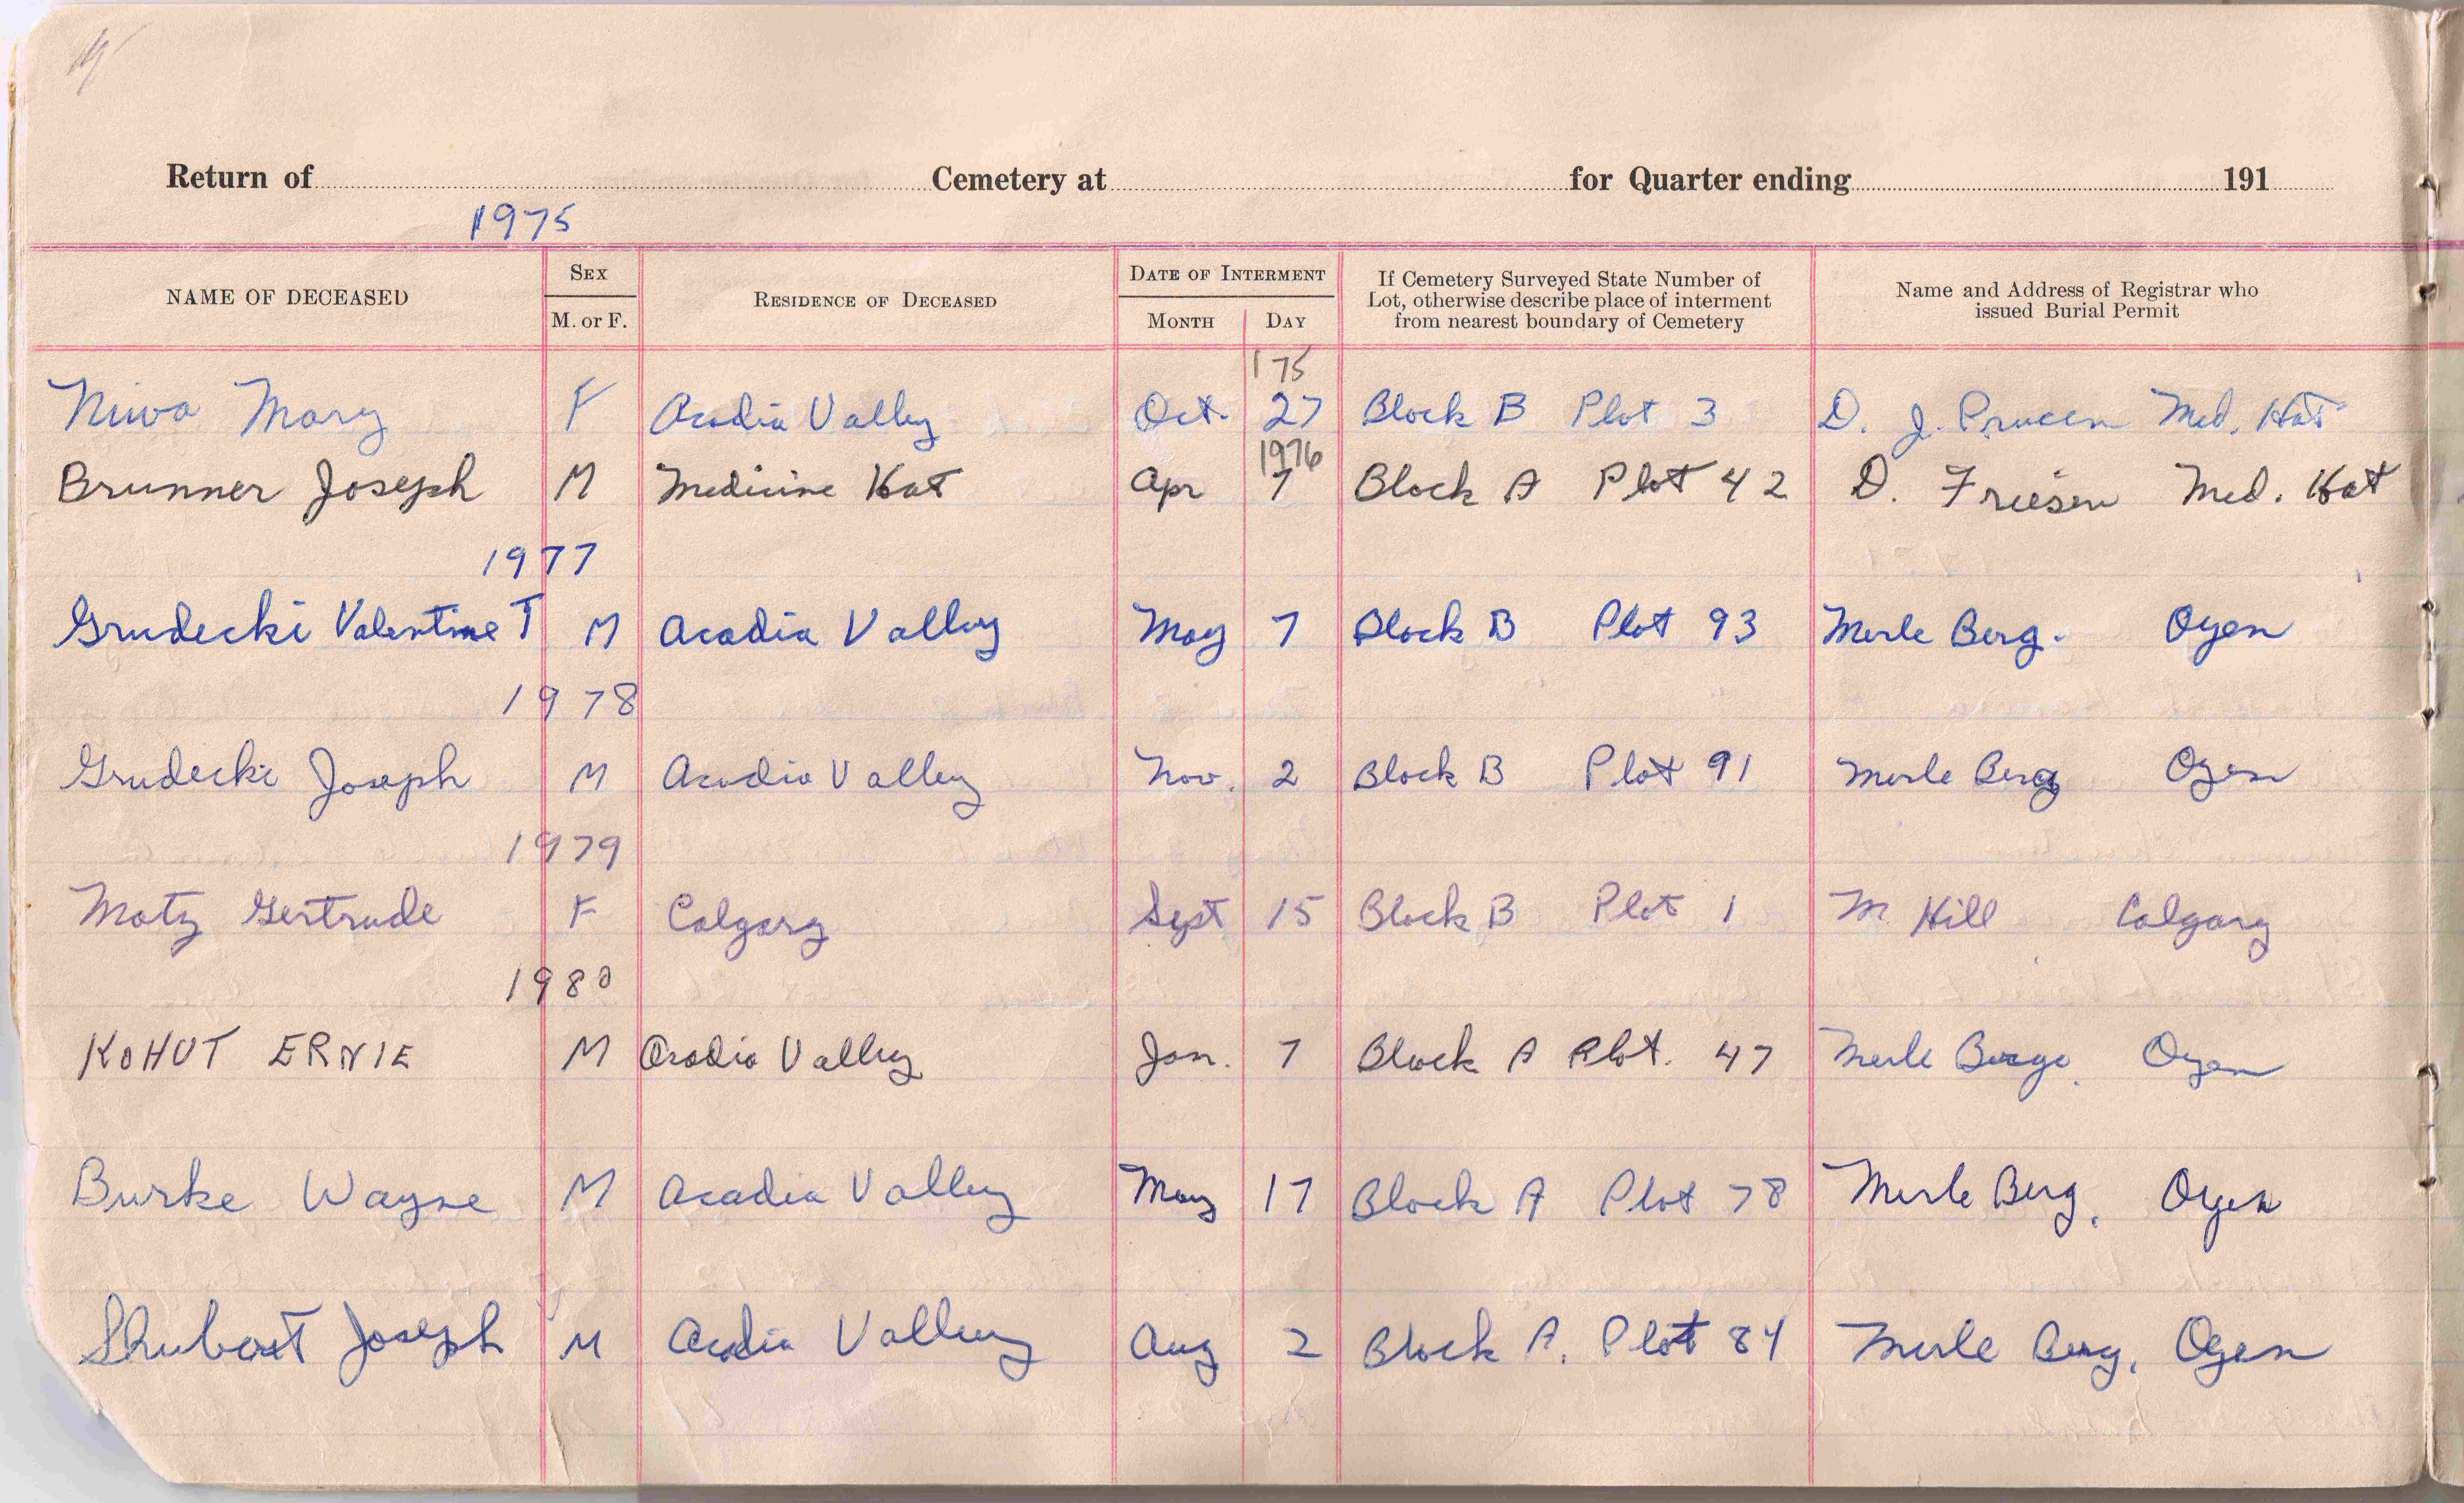 Return of Cemetery at for Quarter ending 191
1975
NAME OF DECEASED SEX M. or F. RESIDENCE OF DECEASED DATE OF INTERMENT MONTH DAY If Cemetery Surveyed State Number of Lot, otherwise describe place of interment from nearest boundary of Cemetery Name and Address of Registrar who issued Burial Permit
175
Niwa Mary F Acadia Valley Oct. 27 Block B Plot 3 D. J. Med. Hat
1976
Brunner Joseph M Medicine Hat Apr 7 Block A Plot 42 D. Friesen Med. Hat
1977
Grudecki Valentine T M Acadia Valley May 7 Block B Plot 93 Merle Berg. Oyen
1978
Grudecki Joseph M Acadia Valley Nov. 2 Block B Plot 91 Merle Berg Oyen
1979
Motz Gertrude F Calgary Sept 15 Block B Plot 1 M. Hill Calgary
1980
KOHUT ERNIE M Acadia Valley Jan. 7 Block A Plot. 47 Merle Berge. Oyen
Burke Wayne M Acadia Valley May 17 Block A Plot 78 Merle Berg, Oyen
Shubert Joseph M Acadia Valley Aug 2 Block A. Plot 84 Merle Berg, Oyen